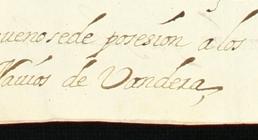 uenose de posesión a los
Navios de Vandera,